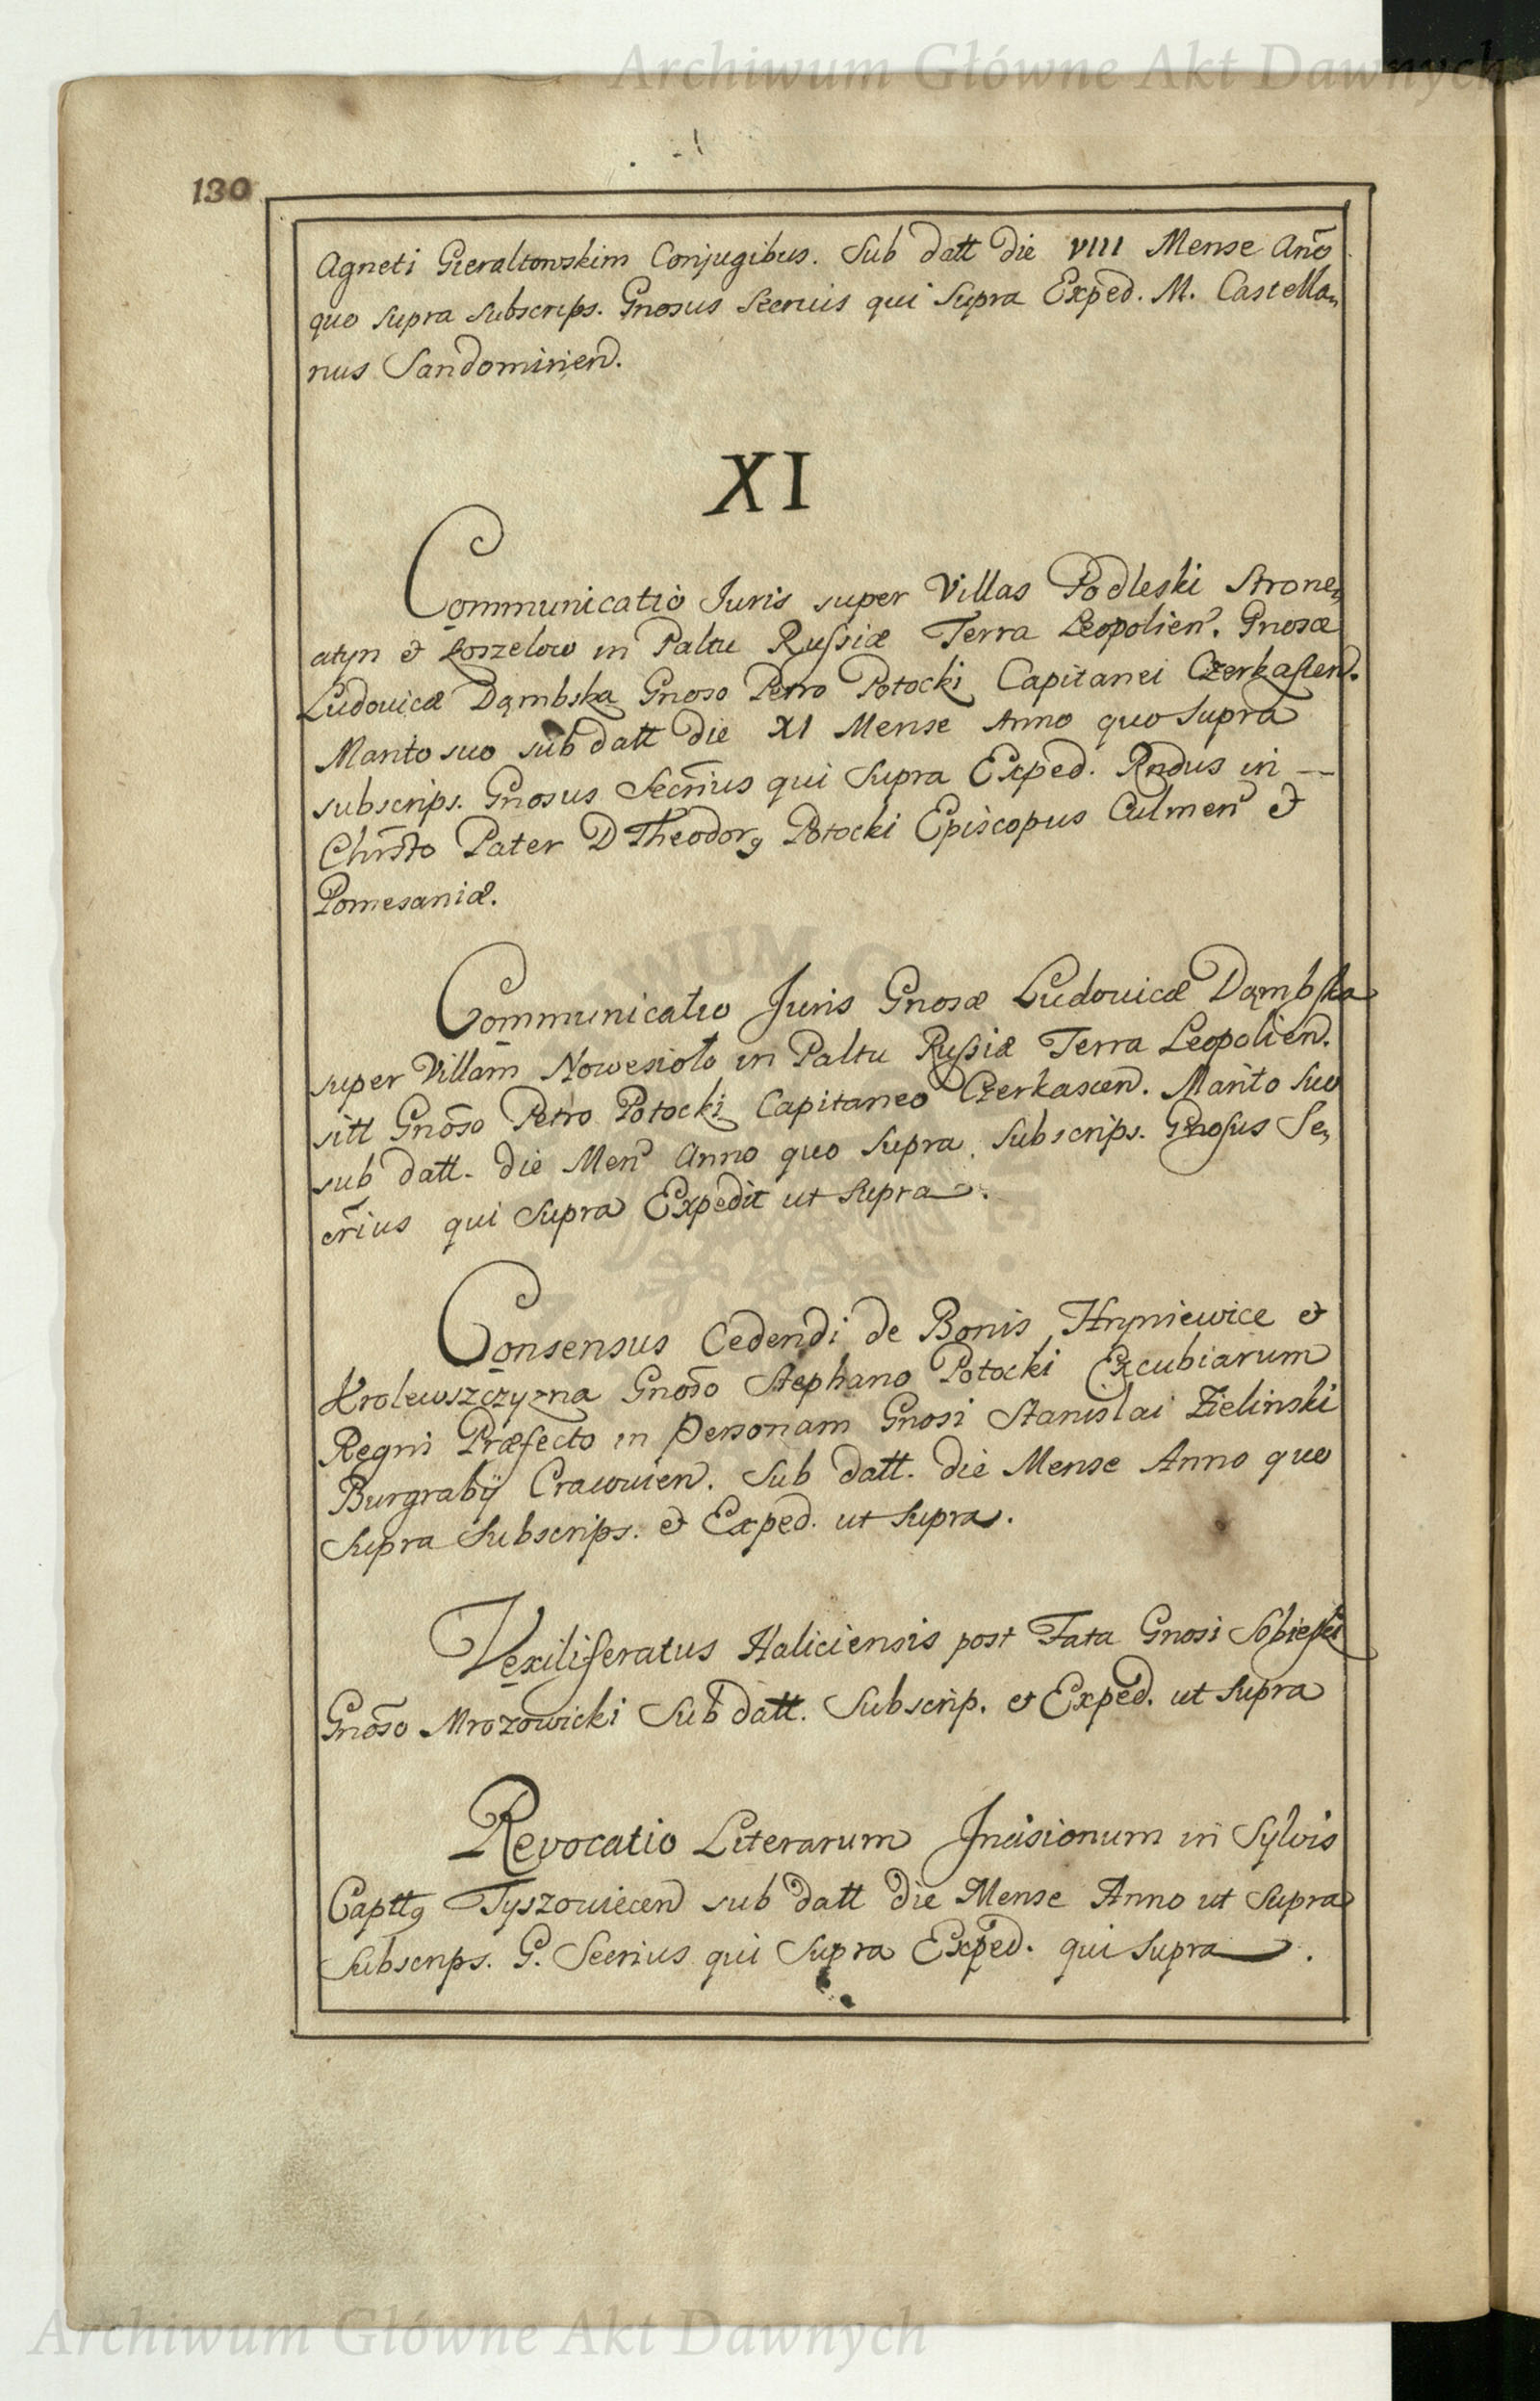 Archiwum Główne Akt Dawnych
130
Agneti Gieraltowskim Conjugibus. Sub datt die VIII Mense Año
quo supra subscrips. Gnosus Secrius qui supra Exped. M. Castella„
nus Sandomirien.
XI
Communicatio Juris super Villas Podleski Strone„
atyn et Koszelow in Paltu Russiæ Terra Leopolien. Gnosæ
Ludovicæ Dąmbska Gnoso Petro Potocki Capitanei Czerkassen.
Marito suo sub datt die XI Mense Anno quo Supra
subscrips. Gnosus Secrius qui Supra Exped. Rndus in —
Christo Pater D Theodorg Potocki Episcopus Culmen et
Pomesaniæ.
Communicatio Juris Gnosæ Ludovicæ Dąmbska
super Villam Nowesioło in Paltu Russiæ Terra Leopolien.
sitt Gnoso Petro Potocki Capitaneo Czerkascen. Marito suo
sub datt. die Men Anno quo Supra. Subscrips. Gnosus Se„
crius qui Supra Expedit ut Supra.
Consensus Cedendi de Bonis Hryniewice et
Krolewszczyzna Gnoso Stephano Potocki Excubiarum
Regni Præfecto in Personam Gnosi Stanislai Zielinski
Burgrabij Cracovien. Sub datt. die Mense Anno quo
Supra Subscrips. et Exped. ut Supra.
Vexiliferatus Haliciensis post Fata Gnosi Sobieski
Gnoso Mrozowicki Sub datt. Subscrip. et Exped. ut Supra
Revocatio Literarum Incisionum in Sylvis
Captty Tyszowiecen sub datt die Mense Anno ut Supra
Subscrips. G. Secrius qui Supra Exped. qui Supra.
Archiwum Główne Akt Dawnych